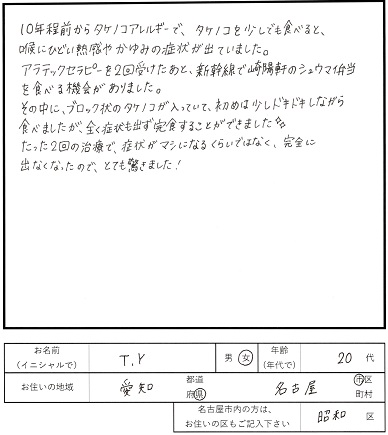 10年程前からタケノコアレルギーで、タケノコを少しでも食べると、
喉にひどい熱感やかゆみの症状が出ていました。
アラテックセラピーを2回受けたあと、新幹線で崎陽軒のシュウマイ弁当
を食べる機会がありました。
その中に、ブロック状のタケノコが入っていて、初めは少しドキドキしながら
食べましたが、全く症状も出ず完食することができました
たった2回の治療で、症状がマシになるくらいではなく、完全に
出なくなったので、とても驚きました!
お名前
(イニシャルで)
T.Y
男 女
年齢
(年代で)
20 代
お住いの地域
愛知
都道
府県
名古屋
市区
町村
名古屋市内の方は、
お住いの区もご記入下さい
昭和 区